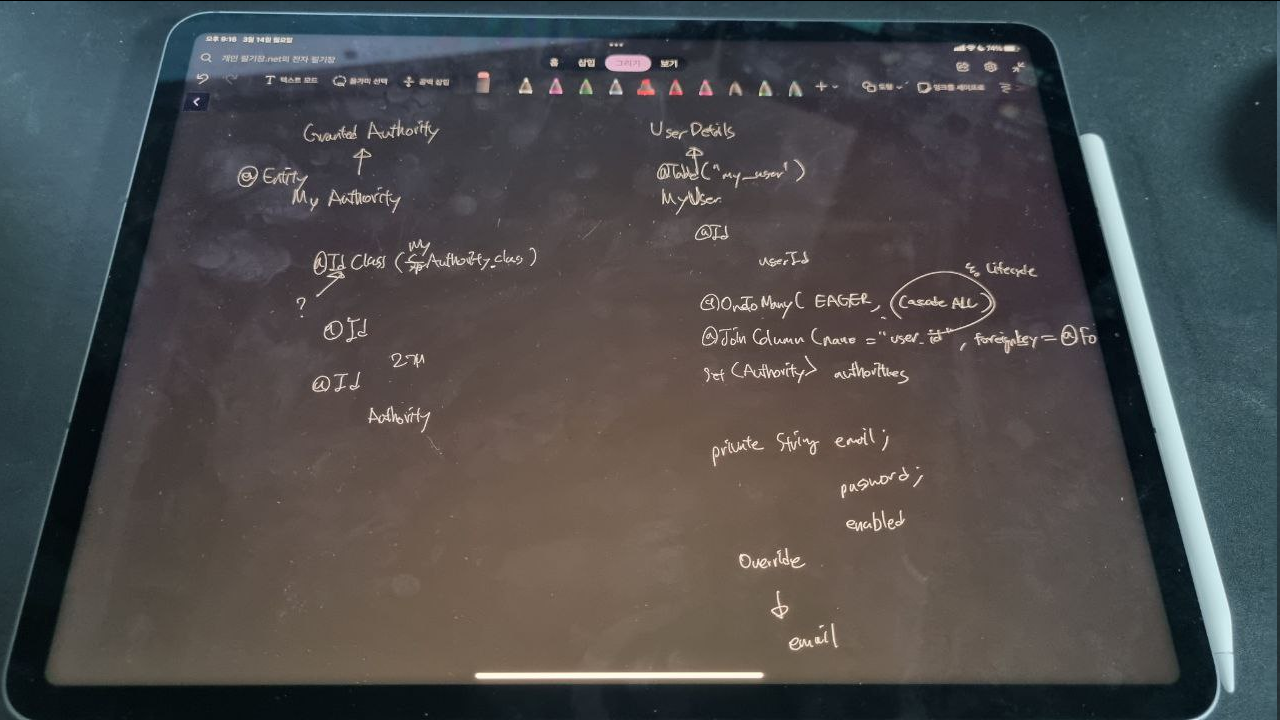 오후 9:16 3월 14일 월요일
74%
개인 필기장.net의 전자 필기장
홈 삽입 그리기 보기
텍스트 모드 올가미 선택 공백 삽입
도형
잉크를 셰이프로
Granted Authority
@Entity
My Authority
@IdClass (My Authority.class)
?
@Id
@Id
Authority
UserDetails
@Table("my_user")
MyUser
@Id
userId
Lifecycle
@OneToMany( EAGER, (Cascade ALL)
@Join Column (name = "user_id", foreignkey = @Fo
Set <Authority> authorities
private String email;
password;
enabled
Override
email